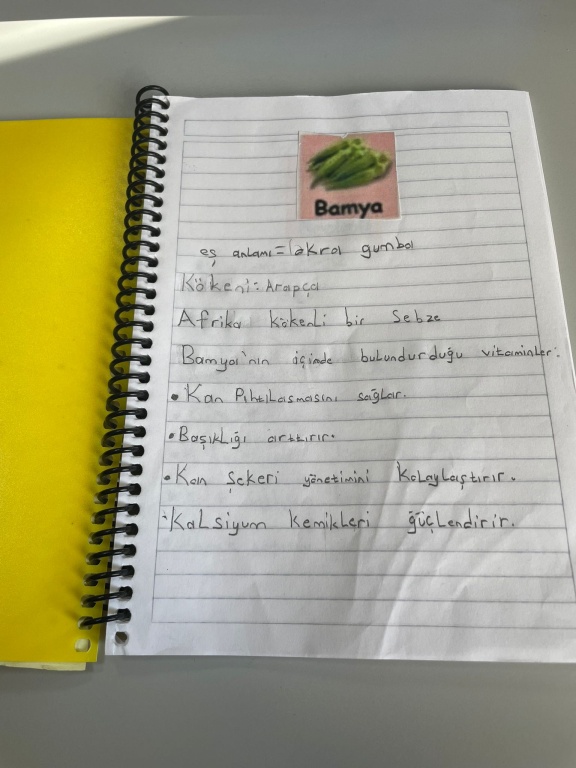 Bamya
eş anlamı = okra gumbo
Kökeni: Arapça
Afrika kökenli bir Sebze
Bamya'nın içinde bulundurduğu vitaminler:
• Kan Pıhtılaşmasını sağlar.
• Başıklığı arttırır.
• Kan Şekeri yönetimini Kolaylaştırır.
• Kalsiyum kemikleri güçlendirir.